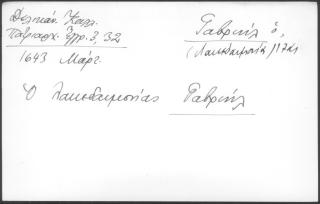 Δελικάν. Καλλ.
Πατριαρχ. Ἔγγρ. 3, 32
1643 Μάρτ.
Γαβριήλ ὁ,
(Λακεδαιμονίας)
Ὁ Λακεδαιμονίας Γαβριήλ